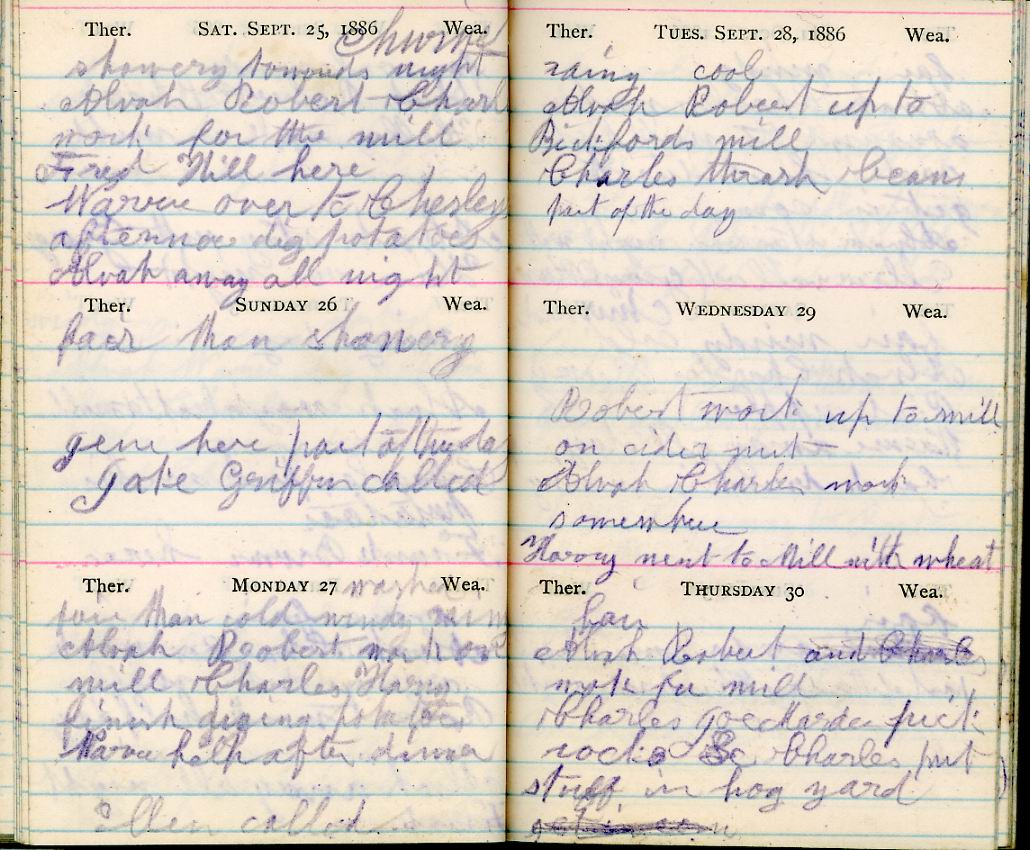 Ther. SAT. SEPT. 25, 1886 Wea.
Churned
showery towards night
Alvah Robert Charl
work for the mill
Fred Hill here
Warvue over to Chesleys
afternoo dig potatoes
Alvah away all night
Ther. SUNDAY 26 Wea.
fair than showery
gene here part of the day
Gate Griffin called
Ther. MONDAY 27 Wea.
washed
than cold windy
Alvah Robert work
mill Charles Harvy
finish diging potatoes
help after dinner
Ellen called
Ther. TUES. SEPT. 28, 1886 Wea.
rainy cool
Alvah Robert up to
Bickfords mill
Charles thrash beans
part of the day
Ther. WEDNESDAY 29 Wea.
Robert work up to mill
on cider
Alvah Charles work
somewhere
Harvy went to Mill with wheat
Ther. THURSDAY 30 Wea.
fair
Alvah Robert and Charles
work for mill
Charles pick
rocks & Charles put
stuff in hog yard